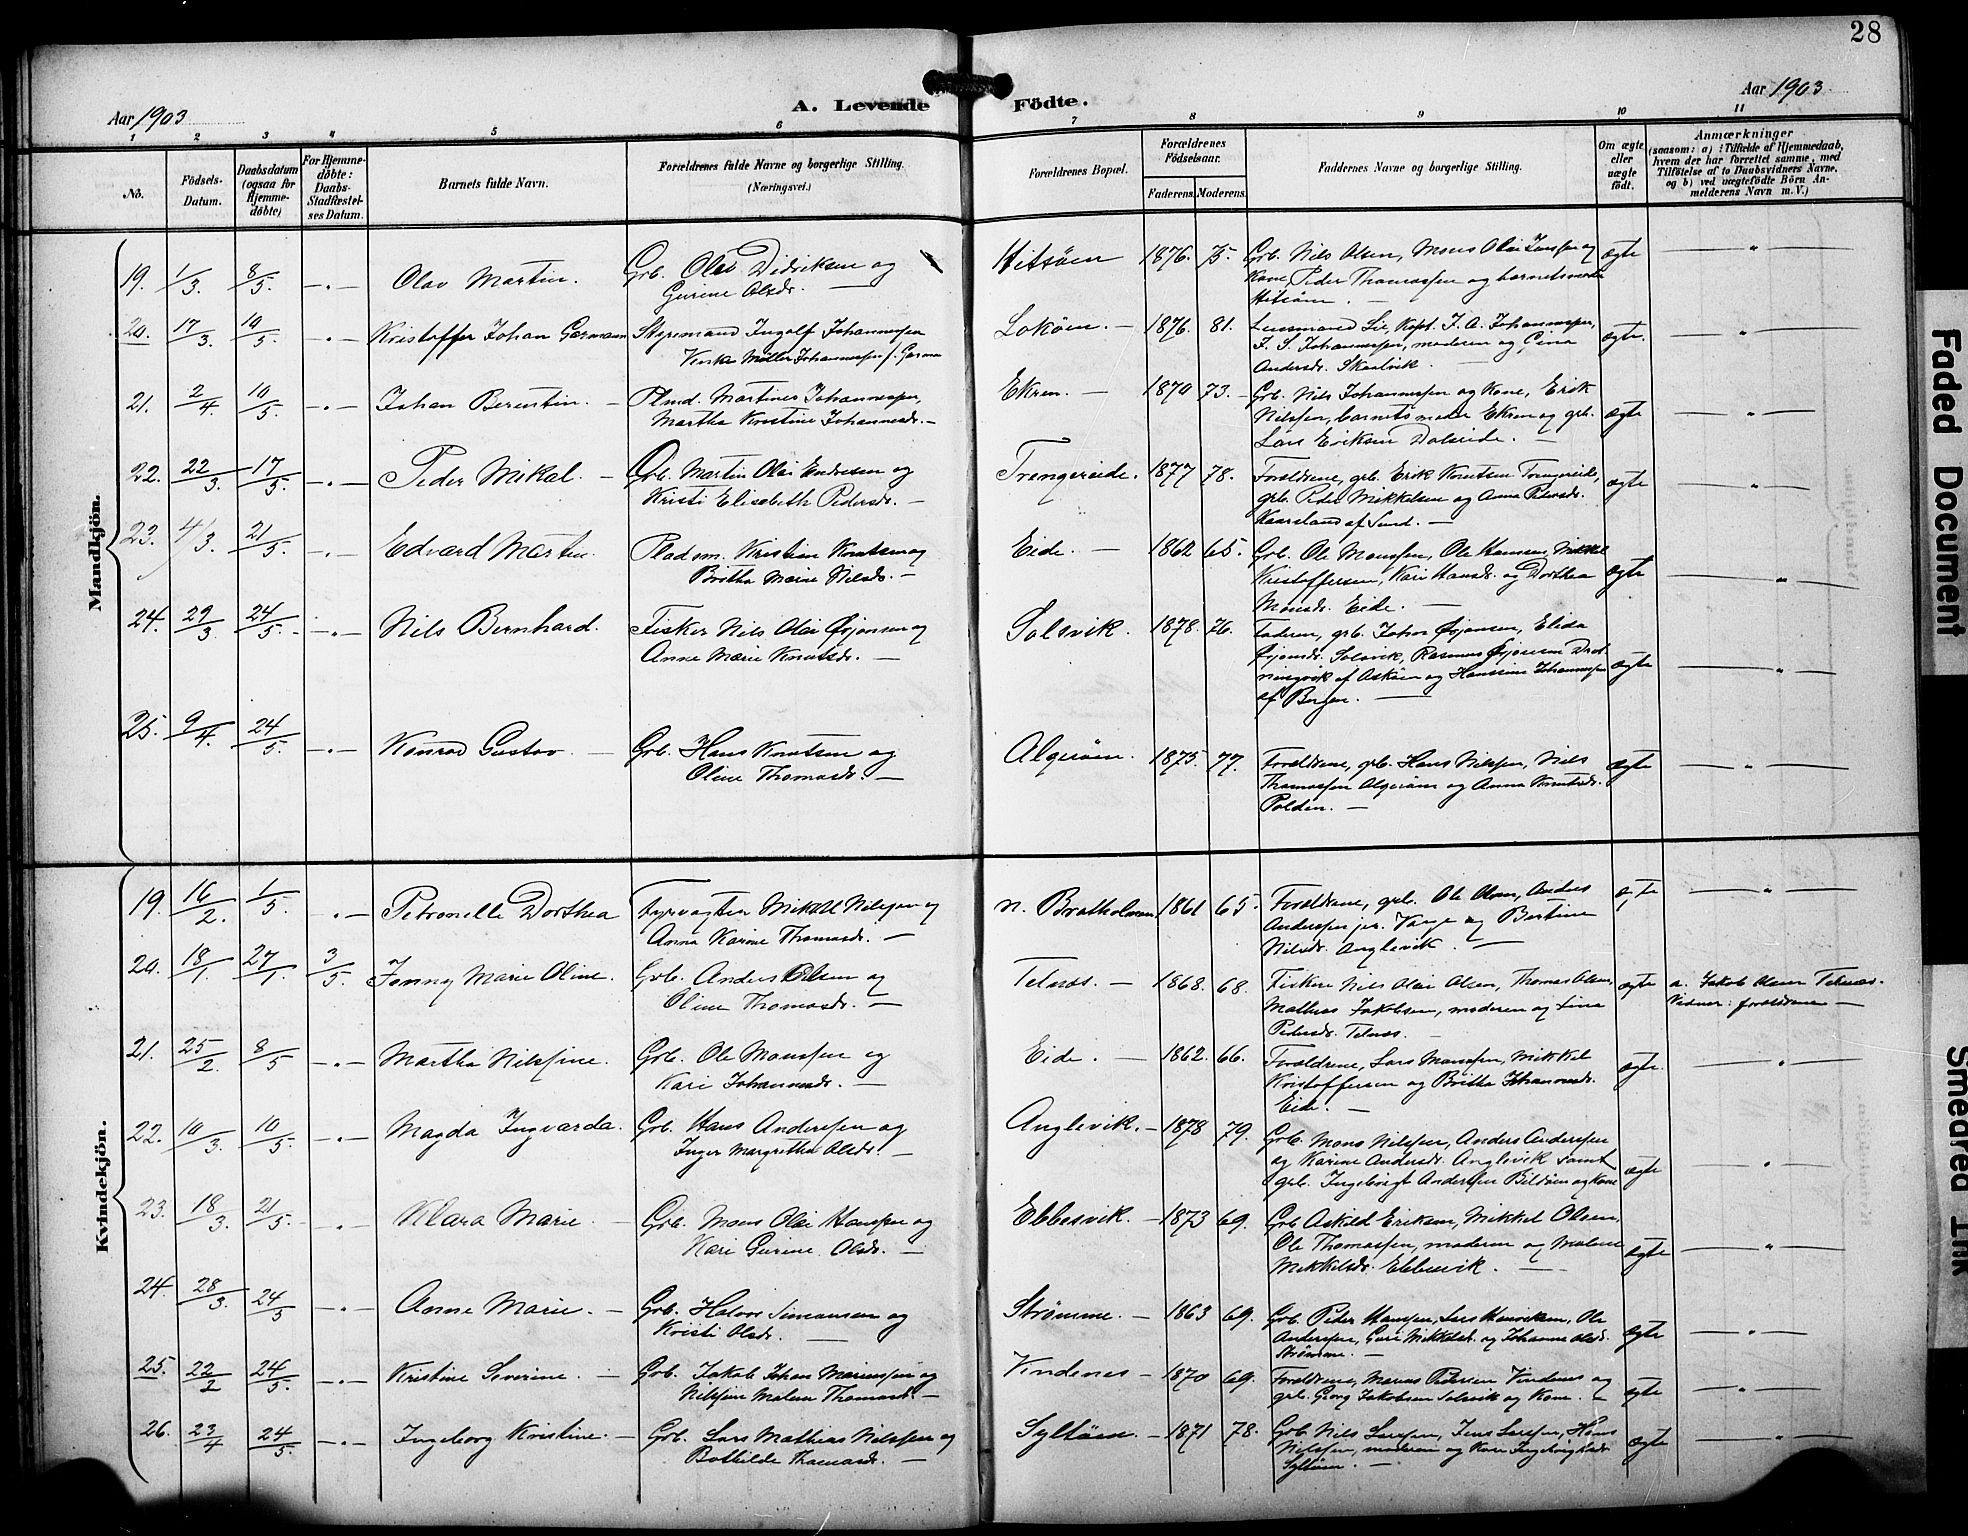 28
Aar 1903
A. Levende Födte.
Aar 1903
1 2 3 4 5 6 7 8 9 10 11
No.
Födsels-Datum.
Daabsdatum (ogsaa for Hjemme-döbte)
For Hjemme-döbte: Daabs-Stadfæstel-ses Datum.
Barnets fulde Navn.
Forældrenes fulde Navne og borgerlige Stilling.
(Næringsvei.)
Forældrenes Bopæl.
Forældrenes Födselsaar.
Faderens. Moderens.
Faddernes Navne og borgerlige Stilling.
Om ægte eller uægte födt.
Anmærkninger
(saasom: a) i Tilfælde af Hjemmedaab,
hvem der har forrettet samme, med
Tilföielse af to Daabsvidners Navne,
og b) ved uægtefödte Börn An-
melderens Navn m. V.)
Mandkjön.
19. 1/3. 8/5. Olav Martin. Grb. Olai Didriksen og
Gurine Olsdr.
Hitsöen 1876. 75. Grb. Nils Olsen, Mons Olai Jenssen og
Kone, Peder Thomassen og barnets moder
Hitsöen. ægte
20. 17/3. 10/5. Kristoffer Johan Garmann Styrmand Ingolf Johannessen
Møller Johannessen f. Garman
Lokøen. 1876. 81. Lensmand Lie, Kapt. J. A. Johannessen,
J. S. Johannessen, moderen og Gina
Andersdr. Skaalvik. ægte.
21. 2/4. 10/5. Johan Berentin. Plmd. Martines Johannessen,
Martha Kristine Johannesdr.
Ekren. 1870 73. Grb. Nils Johannessen og Kone, Erik
Nilssen, barnets moder Ekren og grb.
Lars Eriksen Dalseide. ægte
22. 22/3. 17/5. Peder Mikal. Grb. Martin Olai Endresen og
Kristi Elisabeth Pedersdr.
Trengereide. 1877 78. Forældrene, grb. Erik Knutsen Trengereide,
grb. Peder Mikkelsen og Anna Pedersdr.
Kaarsland af Sund. ægte
23. 4/3. 21/5. Edvard Martin. Pladsm. Kristen Knutsen og
Britha Marie Nilsdr.
Eide. 1862 65. Grb. Ole Monssen, Ole Hanssen, Mikkel
Kristoffersen, Kari Hansdr. og Dorthea
Monsdr. Eide. ægte
24. 29/3. 24/5. Nils Bernhard. Fisker Nils Olai Ørjansen og
Anne Marie Knutsdr.
Solsvik. 1878. 76. Faderen, grb. Johan Ørjansen, Elida
Ørjansdr. Solsvik, Rasmus Ørjansen Dron-
ningvik af Askøen og Hanssine Johannessen
af Bergen. ægte
25. 9/4. 24/5. Konrad Gustav. Grb. Hans Knutsen og
Oline Thomasdr.
Algerøen. 1875. 77. Forældrene, grb. Hans Nilssen, Nils
Thomassen Algerøen og Anna Knutsdr.
Polden. ægte
Kvindekjön.
19. 16/2. 1/5. Petronelle Dorthea Fyrvogter Mikkel Nilssen og
Anna Karine Thomasdr.
n. Bratholmen 1861 65. Forældrene, grb. Ole Olsen, Anders
Anderssen jr. Vaage og Bertine
Nilsdr. Anglevik. ægte
20. 18/1. 27/1. 3/5. Jenny Marie Oline. Grb. Anders Olsen og
Oline Thomasdr.
Telnæs. 1868. 68. Fisker Nils Olai Olsen, Thomas Olsen,
Mathias Jakobsen, moderen og Lina
Pedersdr. Telnæs. ægte a. Jakob Olsen Telnæs.
Vidner: forældrene
21. 25/2. 8/5. Martha Nilssine. Grb. Ole Monssen og
Kari Johannesdr.
Eide. 1862. 66. Forældrene, Lars Monssen, Mikkel
Kristoffersen og Britha Johannesdr.
Eide. ægte.
22. 10/3. 10/5. Magda Ingvarda. Grb. Hans Anderssen og
Inger Margretha Olsdr.
Anglevik. 1878 79. Grb. Mons Nilssen, Anders Anderssen
og Karine Andersdr. Anglevik samt
grb. Ingebrigt Anderssen Bildøen og Kone ægte
23. 18/3. 21/5. Klara Marie Grb. Mons Olai Hanssen og
Kari Gurine Olsdr.
Ebbesvik. 1873 69. Grb. Askild Eriksen, Mikkel Olsen,
Ole Thomassen, moderen og Malene
Mikkelsdr. Ebbesvik. ægte
24. 28/3. 24/5 Anne Marie. Grb. Halvor Simonsen og
Kristi Olsdr.
Strømme. 1863 69. Grb. Peder Hanssen, Lars Henriksen, Ole
Anderssen, Guri Mikkelsdr. og Johanne Olsdr.
Strømme. ægte
25. 22/2 24/5. Kristine Severine. Grb. Jakob Johan Marenssen og
Nilssine Malene Thomasdr.
Vindenes 1870 69. Forældrene, Marius Pedersen Vindenes og
grb. Georg Jakobsen Solsvik og Kone. ægte
26. 23/4 24/5. Ingeborg Kristine. Grb. Lars Mathias Nilssen og
Bothilde Thomasdr.
Syltøen. 1871 78. Grb. Nils Larssen, Jens Larssen, Hans
Nilssen, moderen og Kari Ingebrigtsdr.
Syltøen. ægte
Faded Document
Smeared Ink